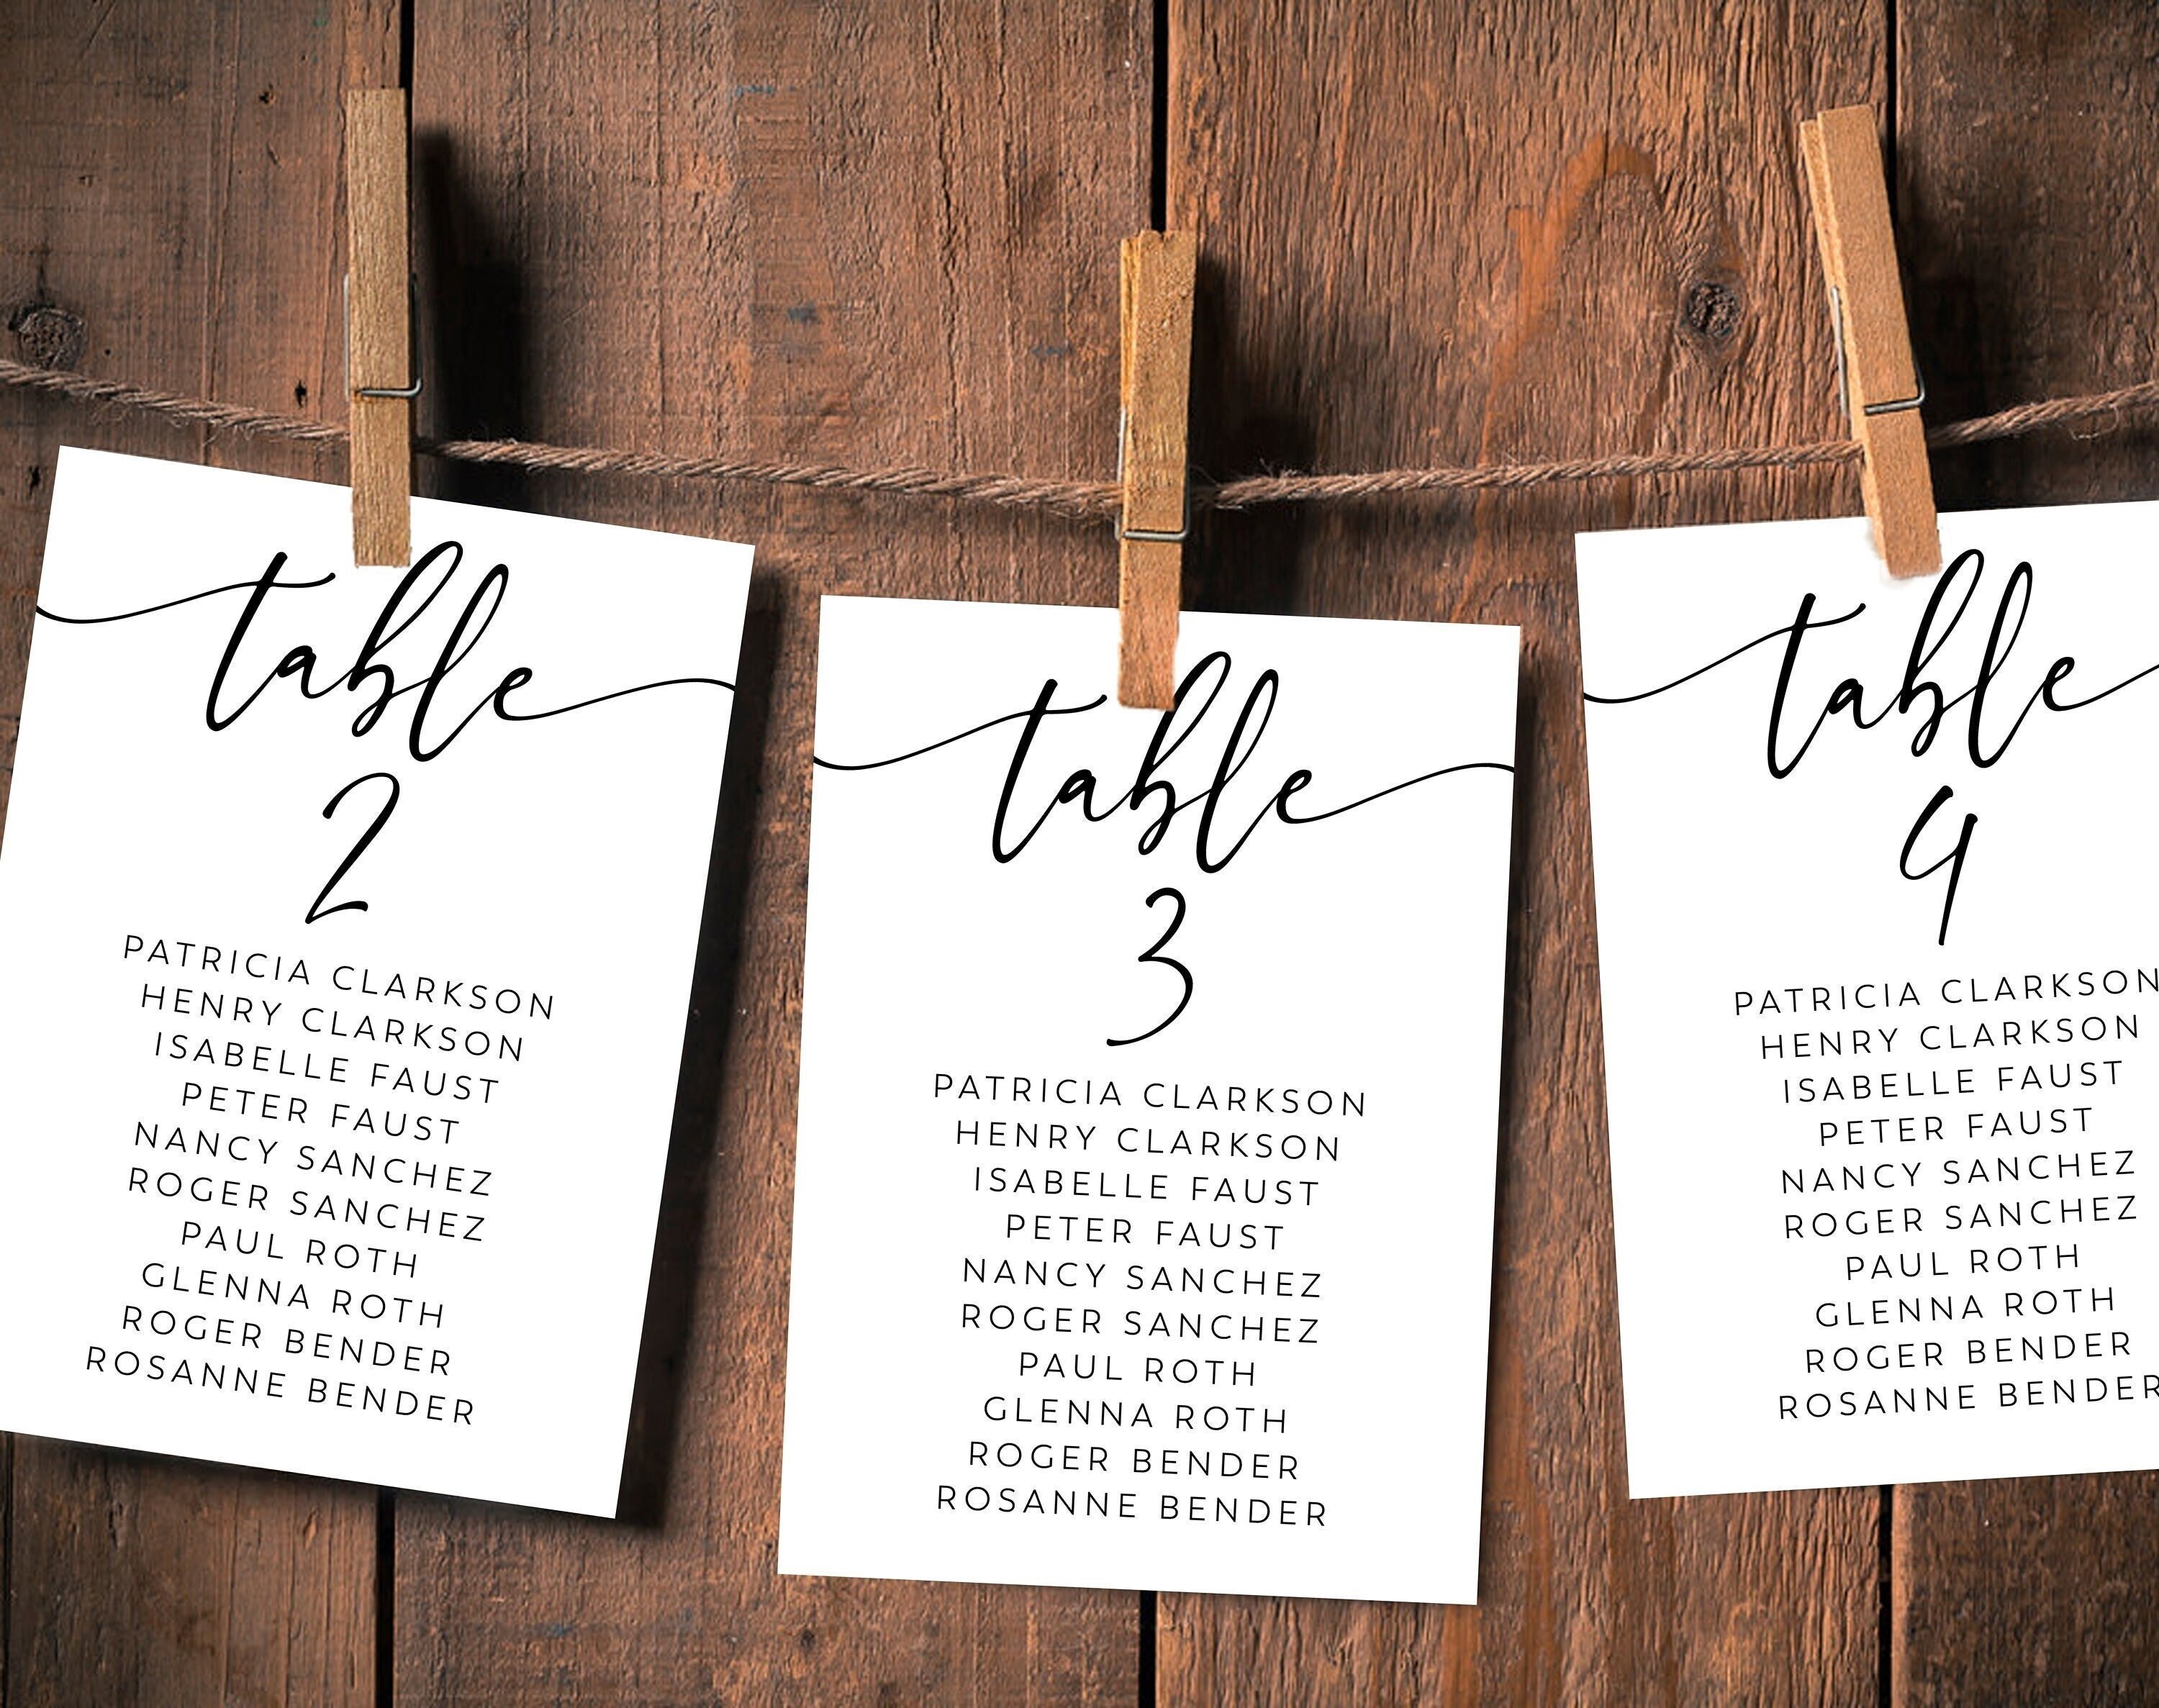 table
2
PATRICIA CLARKSON
HENRY CLARKSON
ISABELLE FAUST
PETER FAUST
NANCY SANCHEZ
ROGER SANCHEZ
PAUL ROTH
GLENNA ROTH
ROGER BENDER
ROSANNE BENDER
table
3
PATRICIA CLARKSON
HENRY CLARKSON
ISABELLE FAUST
PETER FAUST
NANCY SANCHEZ
ROGER SANCHEZ
PAUL ROTH
GLENNA ROTH
ROGER BENDER
ROSANNE BENDER
table
4
PATRICIA CLARKSON
HENRY CLARKSON
ISABELLE FAUST
PETER FAUST
NANCY SANCHEZ
ROGER SANCHEZ
PAUL ROTH
GLENNA ROTH
ROGER BENDER
ROSANNE BENDER